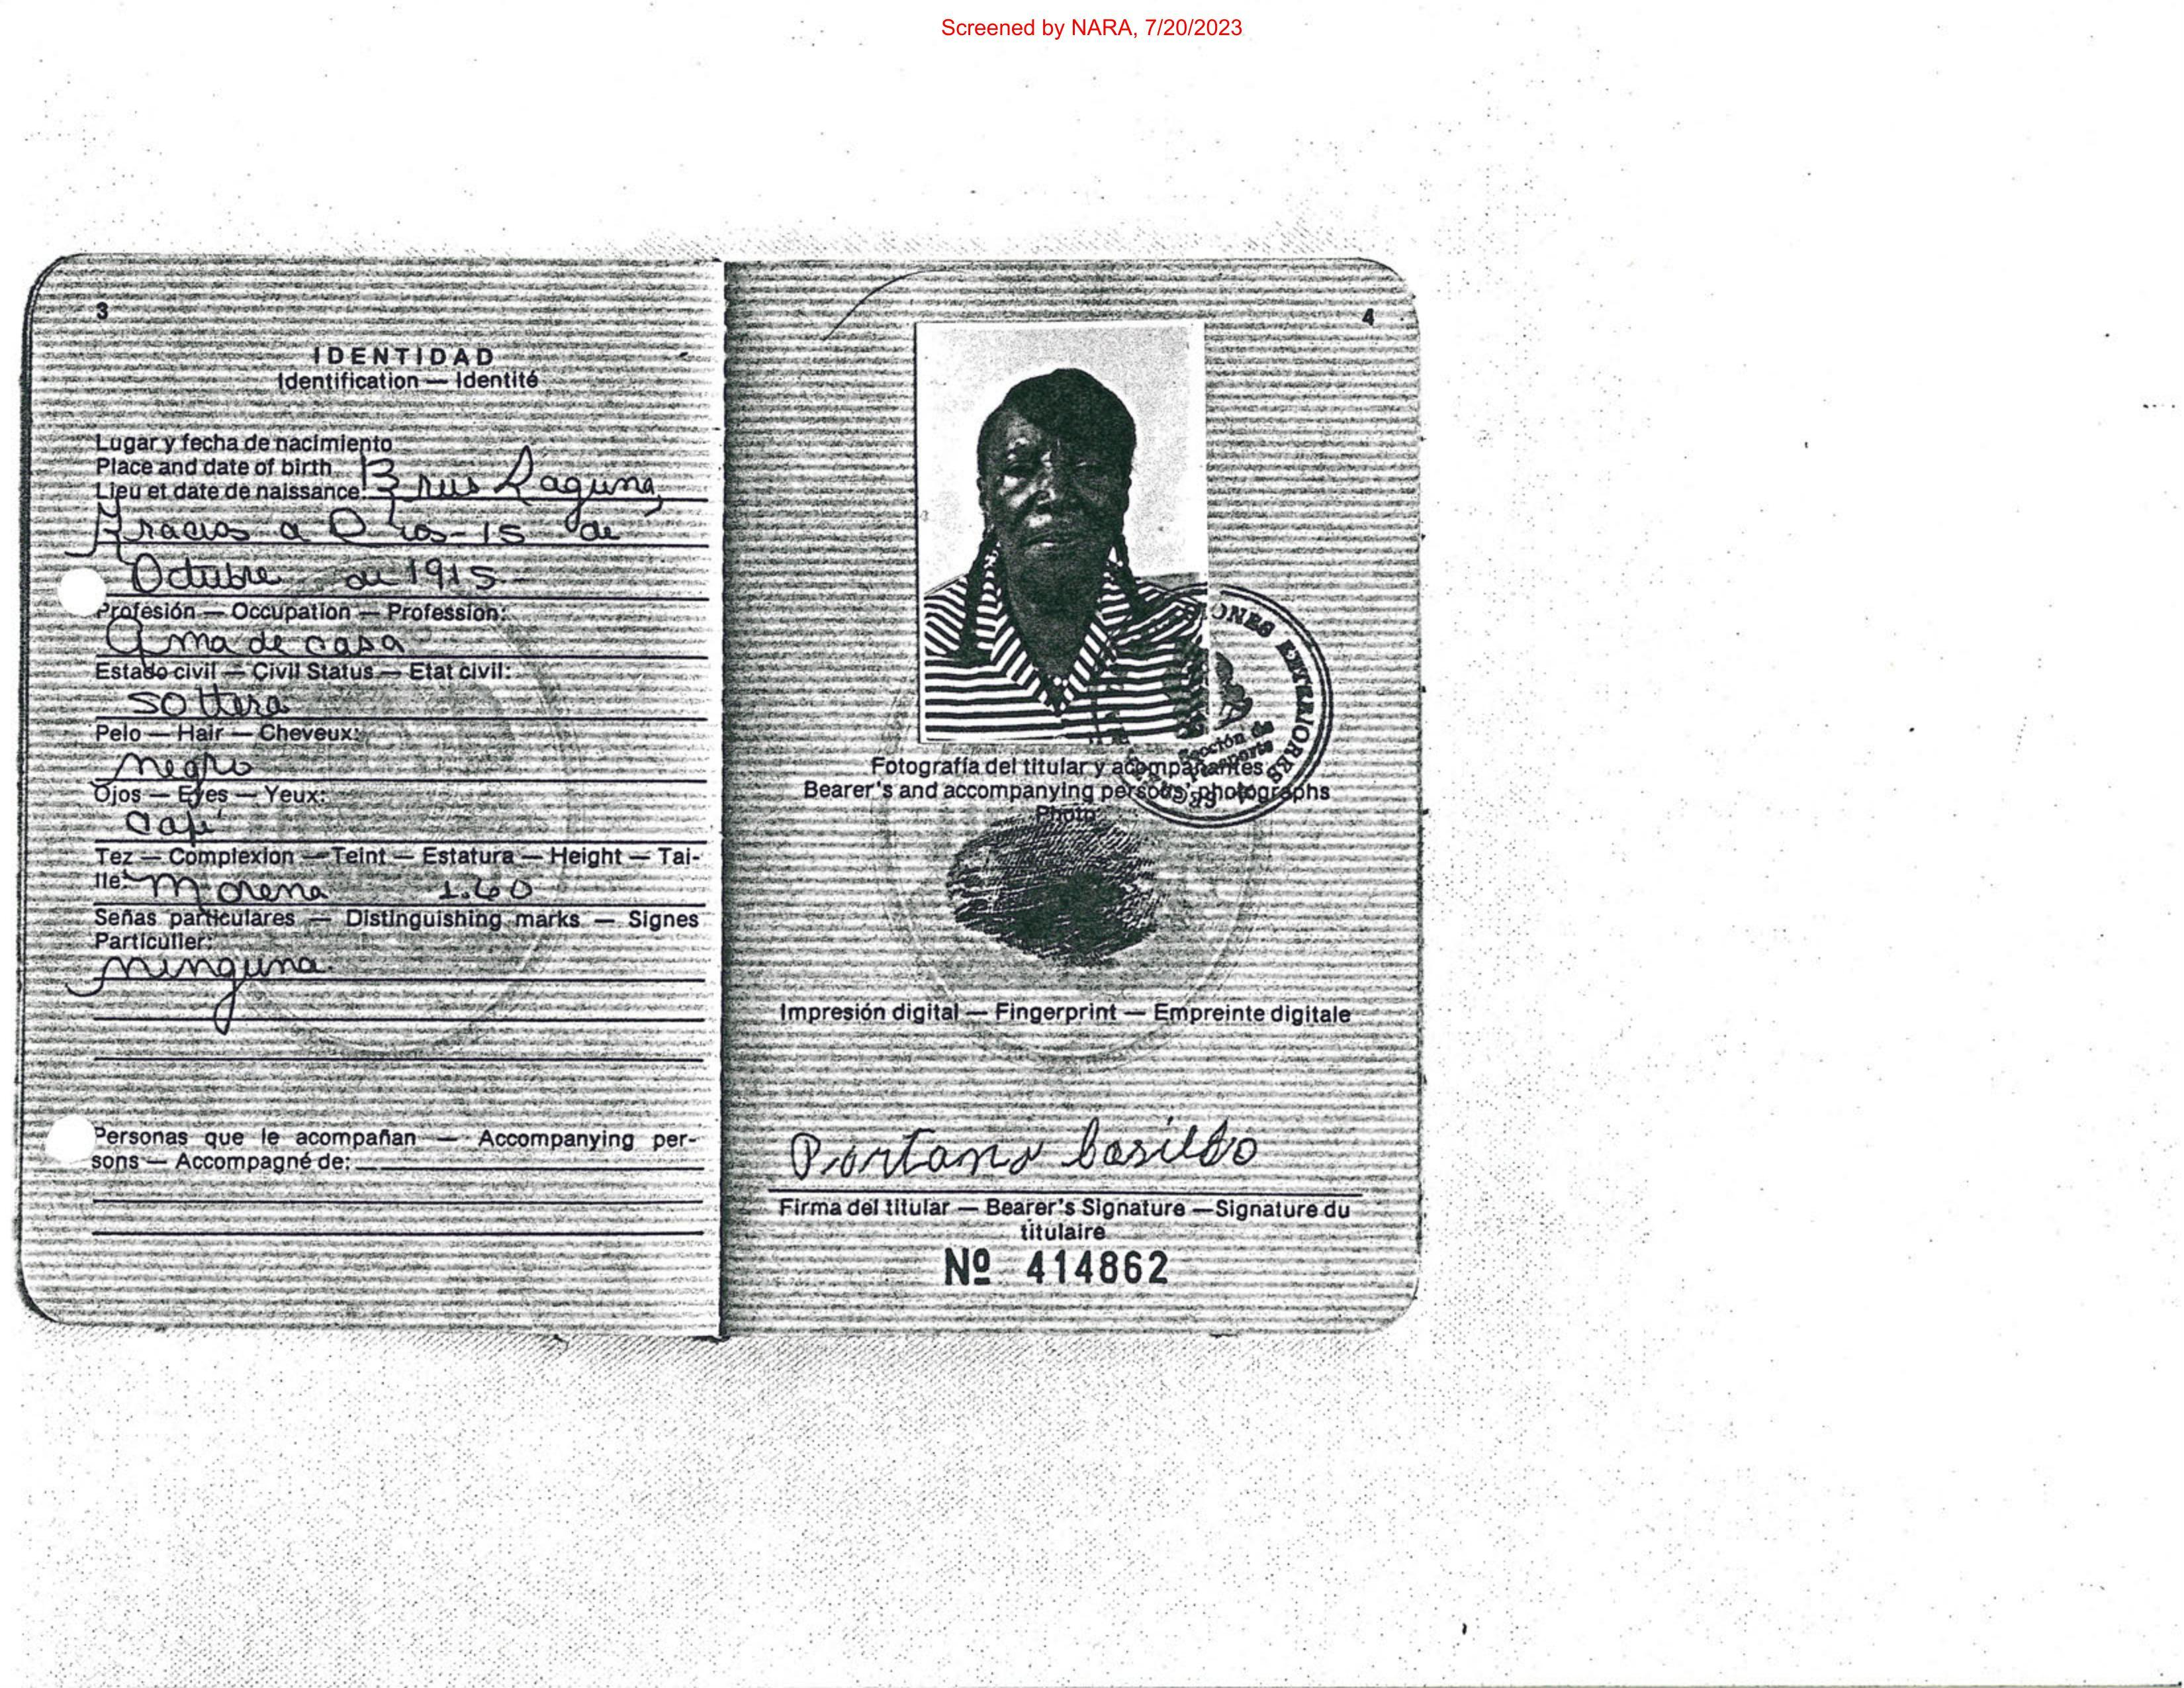 Screened by NARA, 7/20/2023
3
IDENTIDAD
Identification — Identité
Lugar y fecha de nacimiento
Place and date of birth
Lieu et date de naissance: Brus Laguna,
Gracias a Dios - 15 de
Octubre de 1915 -
Profesión — Occupation — Profession:
Ama de casa
Estado civil — Civil Status — Etat civil:
soltera
Pelo — Hair — Cheveux:
negro
Ojos — Eyes — Yeux:
Café
Tez — Complexion — Teint — Estatura — Height — Tai-
lle: Morena 1.60
Señas particulares — Distinguishing marks — Signes
Particulier:
ninguna
Personas que le acompañan — Accompanying per-
sons — Accompagné de:
4
IONES EXTERIORES
Sección de
Pasaporte
Fotografía del titular y acompañantes
Bearer's and accompanying persons' photographs
Photo
Impresión digital — Fingerprint — Empreinte digitale
Firma del titular — Bearer's Signature — Signature du
titulaire
Nº 414862